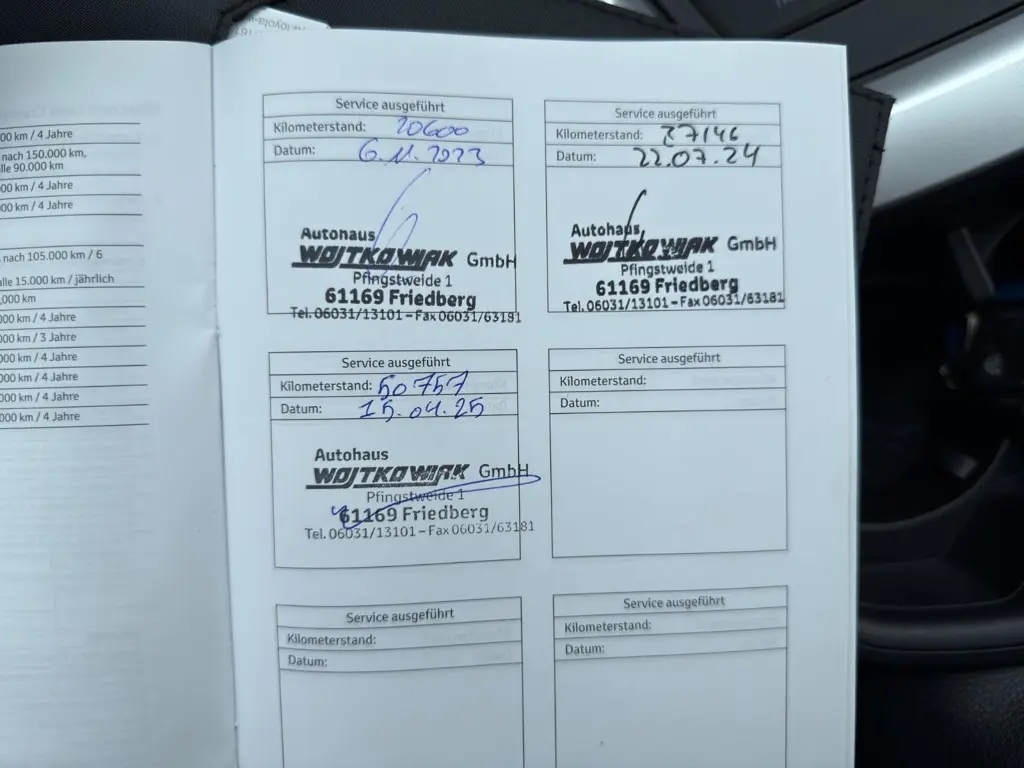 00 km / 4 Jahre
nach 150.000 km,
lle 90.000 km
00 km / 4 Jahre
00 km / 4 Jahre
nach 105.000 km / 6
lle 15.000 km / jährlich
.000 km
000 km / 4 Jahre
000 km / 3 Jahre
000 km / 4 Jahre
000 km / 4 Jahre
000 km / 4 Jahre
000 km / 4 Jahre
Service ausgeführt
Kilometerstand: 20600
Datum: 6.11.2023
Autohaus
WOJTKOWIAK GmbH
Pfingstweide 1
61169 Friedberg
Tel. 06031/13101 – Fax 06031/63181
Service ausgeführt
Kilometerstand: 37146
Datum: 22.07.24
Autohaus
WOJTKOWIAK GmbH
Pfingstweide 1
61169 Friedberg
Tel. 06031/13101 – Fax 06031/63181
Service ausgeführt
Kilometerstand: 50757
Datum: 15.04.25
Autohaus
WOJTKOWIAK GmbH
Pfingstweide 1
61169 Friedberg
Tel. 06031/13101 – Fax 06031/63181
Service ausgeführt
Kilometerstand:
Datum:
Service ausgeführt
Kilometerstand:
Datum:
Service ausgeführt
Kilometerstand:
Datum: